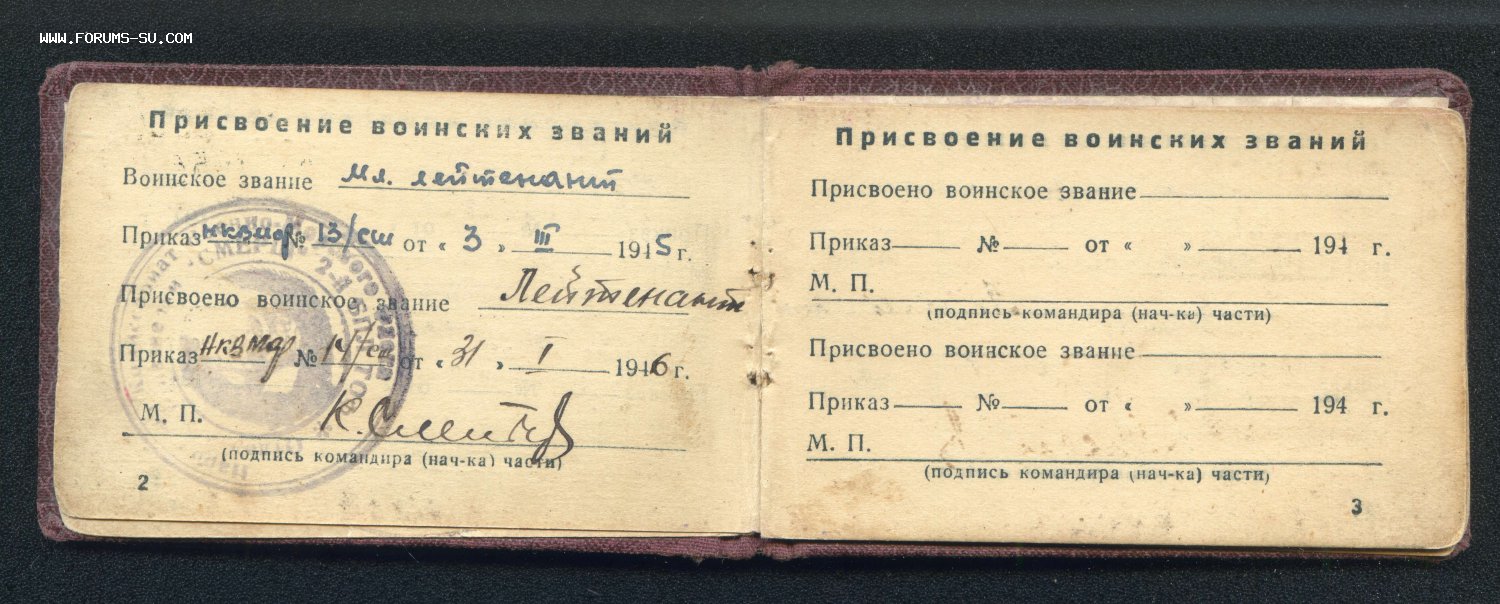 WWW.FORUMS-SU.COM
Присвоение воинских званий
Воинское звание Мл. лейтенант
Приказ НКВМФ № 13/сш от « 3 » III 1945 г.
Присвоено воинское звание Лейтенант
Приказ НКВМФ № от « 31 » I 1946 г.
М. П.
(подпись командира (нач-ка) части)
2
СМЕРШ 2-й
Присвоение воинских званий
Присвоено воинское звание
Приказ № от « » 194 г.
М. П.
(подпись командира (нач-ка) части)
Присвоено воинское звание
Приказ № от « » 194 г.
М. П.
(подпись командира (нач-ка) части)
3